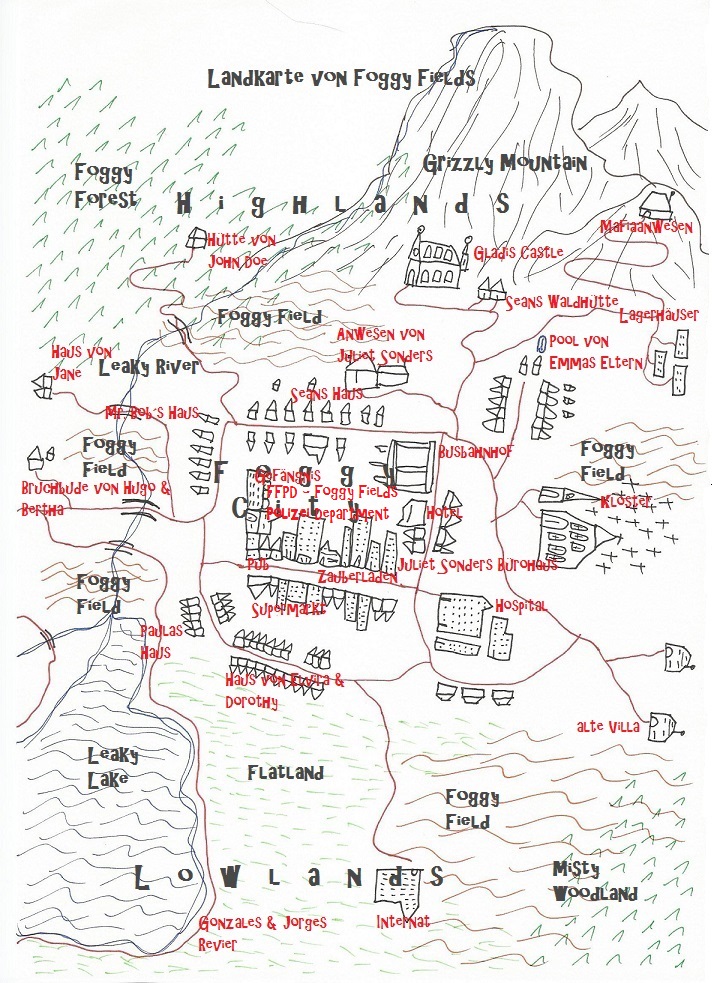 Landkarte von Foggy Fields
Grizzly Mountain
Foggy
Forest
Highlands
Mafiaanwesen
Hütte von
John Doe
Gladis Castle
Seans Waldhütte
Lagerhäuser
Foggy Field
Anwesen von
Juliet Sonders
Pool von
Emmas Eltern
Haus von
Jane
Leaky River
Seans Haus
Mr Bob's Haus
Foggy
Field
Busbahnhof
Foggy
Field
Foggy
City
Gefängnis
FFPD - Foggy Fields
Polizei Department
Bruchbude von Hugo &
Bertha
Hotel
Kloster
Pub
Zauberladen
Juliet Sonders Bürohaus
Foggy
Field
Supermarkt
Hospital
Paulas
Haus
Haus von Elvira &
Dorothy
Alte Villa
Leaky
Lake
Flatland
Foggy
Field
Lowlands
Misty
Woodland
Gonzales & Jorges
Revier
Internat